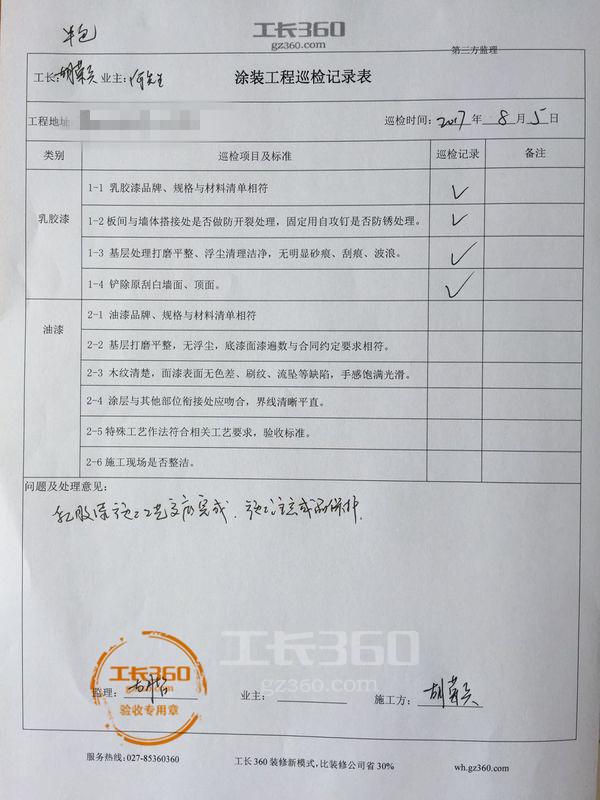 半包
工长360
gz360.com
第三方监理
工长:胡荣兵 业主:
涂装工程巡检记录表
工程地址 巡检时间: 2017 年 8 月 5 日
类别 巡检项目及标准 巡检记录 备注
乳胶漆
1-1 乳胶漆品牌、规格与材料清单相符 ✓
1-2 板间与墙体搭接处是否做防开裂处理，固定用自攻钉是否防锈处理。 ✓
1-3 基层处理打磨平整、浮尘清理洁净，无明显砂痕、刮痕、波浪。 ✓
1-4 铲除原刮白墙面、顶面。 ✓
油漆
2-1 油漆品牌、规格与材料清单相符
2-2 基层打磨平整，无浮尘，底漆面漆遍数与合同约定要求相符。
2-3 木纹清楚，面漆表面无色差、刷纹、流坠等缺陷，手感饱满光滑。
2-4 涂层与其他部位衔接处应吻合，界线清晰平直。
2-5 特殊工艺作法符合相关工艺要求，验收标准。
2-6 施工现场是否整洁。
问题及处理意见：
乳胶漆施工完成，施工注意成品保护.
工长360
gz360.com
工长360
监理:
验收专用章
业主:
施工方: 胡荣兵
服务热线: 027-85360360
工长 360 装修新模式，比装修公司省 30%
wh.gz360.com